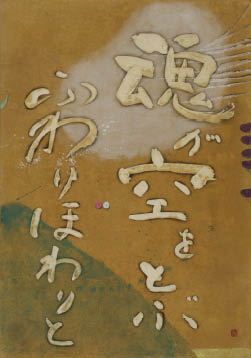 魂が空をとぶ
ふわりほわりと